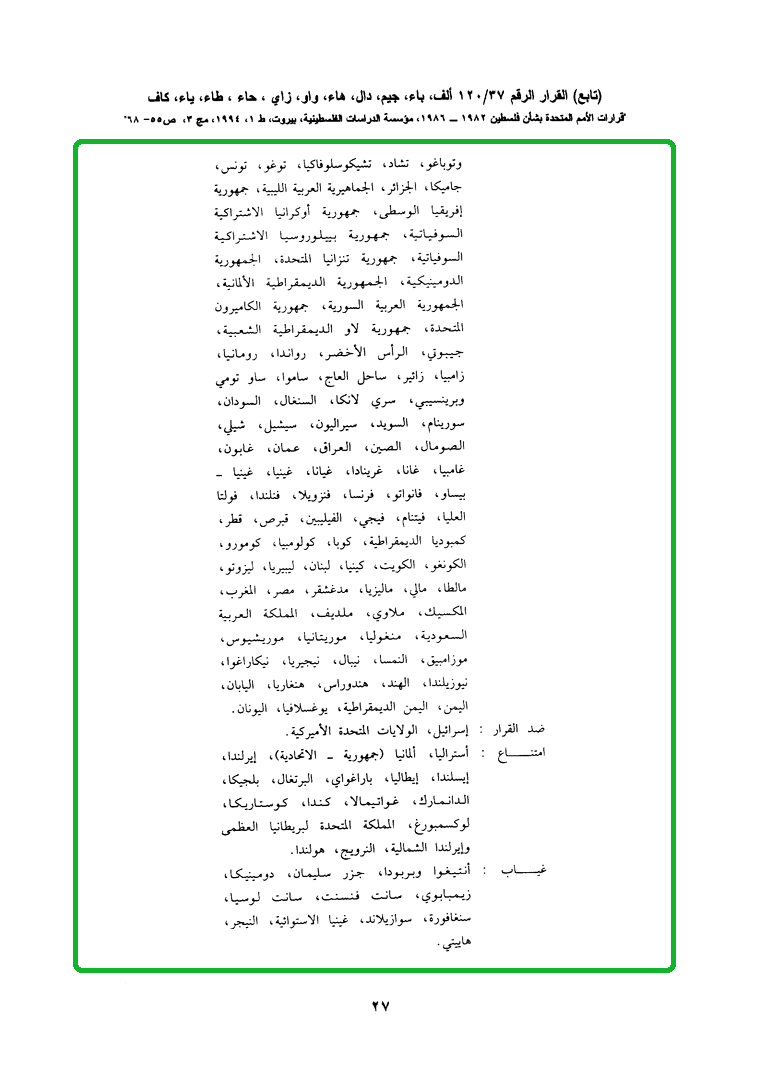 (تابع) القرار الرقم ١٢٠/٣٧ ألف، باء، جيم، دال، هاء، واو، زاي ، حاء ، طاء، ياء، كاف
"قرارات الأمم المتحدة بشأن فلسطين ١٩٨٢ ــ ١٩٨٦، مؤسسة الدراسات الفلسطينية، بيروت، ط ١، ١٩٩٤، مج ٣، ص٥٥- ٦٨"
وتوباغو، تشاد، تشيكوسلوفاكيا، توغو، تونس،
جاميكا، الجزائر، الجماهيرية العربية الليبية، جمهورية
إفريقيا الوسطى، جمهورية أوكرانيا الاشتراكية
السوفياتية، جمهورية بييلوروسيا الاشتراكية
السوفياتية، جمهورية تنزانيا المتحدة، الجمهورية
الدومينيكية، الجمهورية الديمقراطية الألمانية،
الجمهورية العربية السورية، جمهورية الكاميرون
المتحدة، جمهورية لاو الديمقراطية الشعبية،
جيبوتي، الرأس الأخضر، رواندا، رومانيا،
زامبيا، زائير، ساحل العاج، ساموا، ساو تومي
وبرينسيبي، سري لانكا، السنغال، السودان،
سورينام، السويد، سيراليون، سيشيل، شيلي،
الصومال، الصين، العراق، عمان، غابون،
غامبيا، غانا، غرينادا، غيانا، غينيا، غينيا ــ
بيساو، فانواتو، فرنسا، فنزويلا، فنلندا، فولتا
العليا، فيتنام، فيجي، الفيليبين، قبرص، قطر،
كمبوديا الديمقراطية، كوبا، كولومبيا، كومورو،
الكونغو، الكويت، كينيا، لبنان، ليبيريا، ليزوتو،
مالطا، مالي، ماليزيا، مدغشقر، مصر، المغرب،
المكسيك، ملاوي، ملديف، المملكة العربية
السعودية، منغوليا، موريتانيا، موريشيوس،
موزامبيق، النمسا، نيبال، نيجيريا، نيكاراغوا،
نيوزيلندا، الهند، هندوراس، هنغاريا، اليابان،
اليمن، اليمن الديمقراطية، يوغسلافيا، اليونان.
ضد القرار : إسرائيل، الولايات المتحدة الأميركية.
امتنـــــاع : أستراليا، ألمانيا (جمهورية ــ الاتحادية)، إيرلندا،
إيسلندا، إيطاليا، باراغواي، البرتغال، بلجيكا،
الدانمارك، غواتيمالا، كندا، كوستاريكا،
لوكسمبورغ، المملكة المتحدة لبريطانيا العظمى
وإيرلندا الشمالية، النرويج، هولندا.
غيـــــاب : أنتيغوا وبربودا، جزر سليمان، دومينيكا،
زيمبابوي، سانت فنسنت، سانت لوسيا،
سنغافورة، سوازيلاند، غينيا الاستوائية، النيجر،
هاييتي.
٢٧